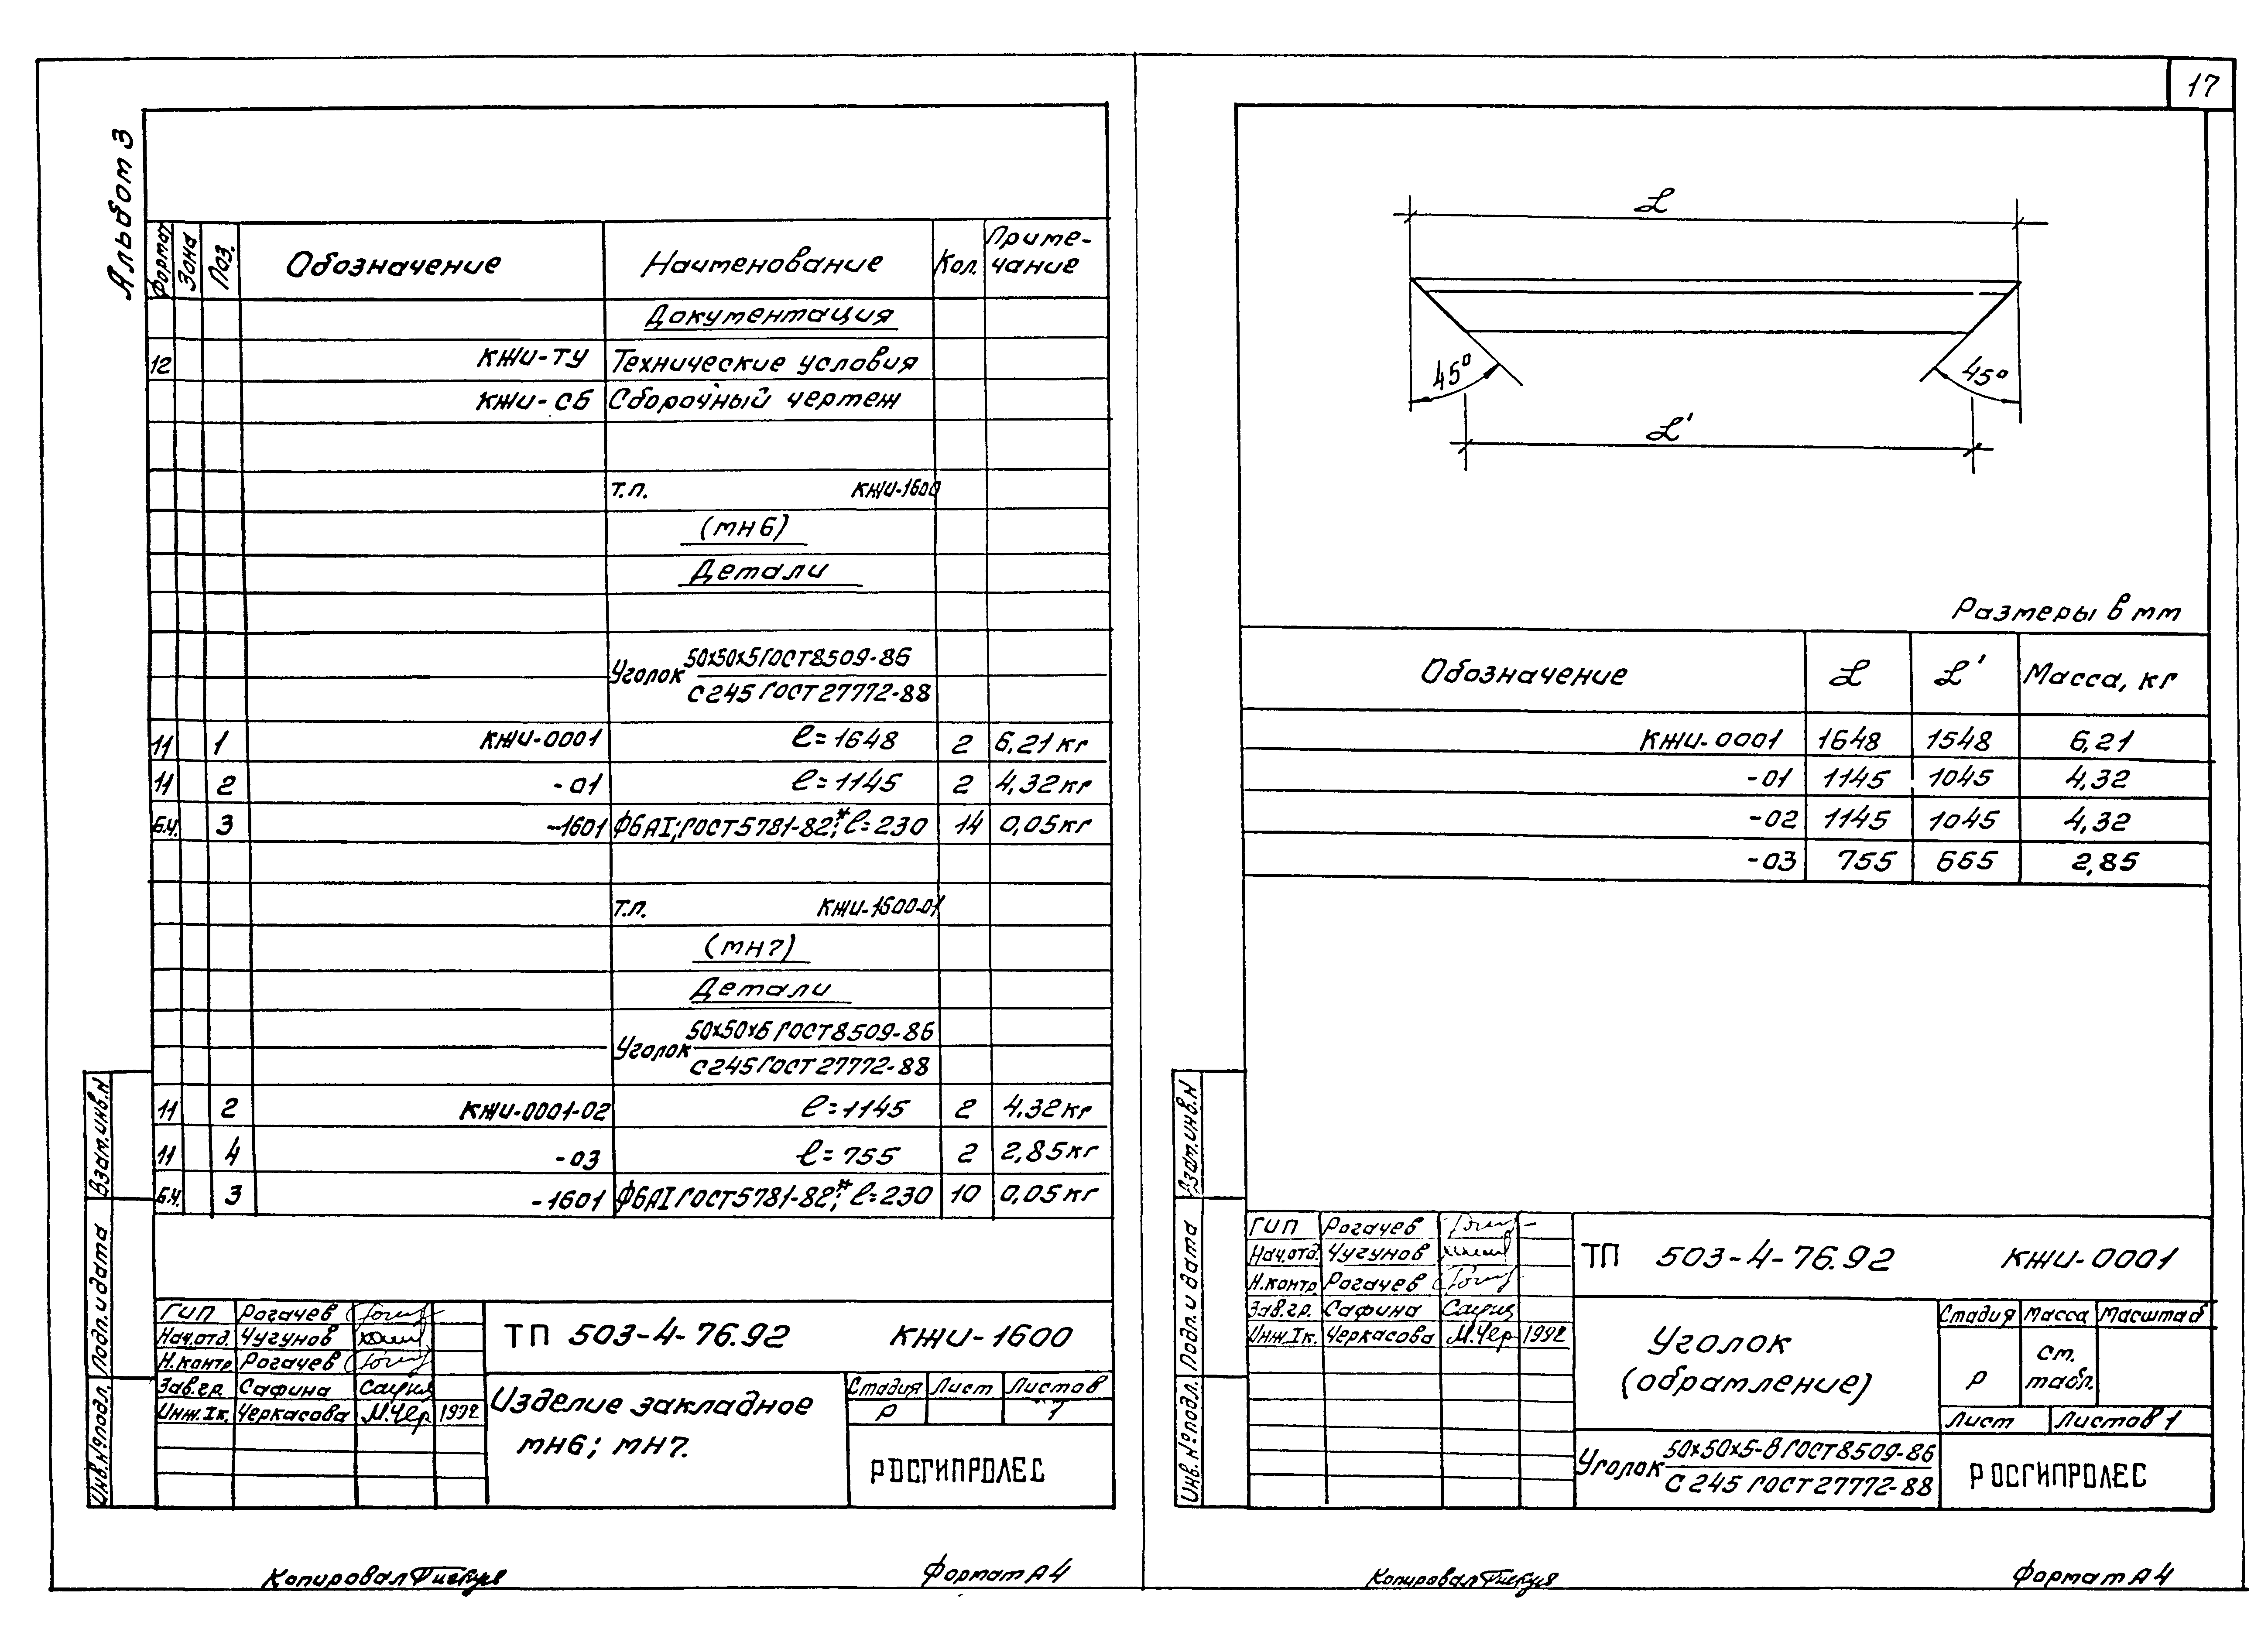 17
Альбом 3
Формат Зона Поз. Обозначение Наименование Кол. Приме-
чание
Документация
12 КЖИ-ТУ Технические условия
КЖИ-СБ Сборочный чертеж
т.п. КЖИ-1600
(МН6)
Детали
Уголок 50х50х5 ГОСТ 8509-86
С 245 ГОСТ 27772-88
11 1 КЖИ-0001 ℓ=1648 2 6,21 кг
11 2 -01 ℓ=1145 2 4,32 кг
Б.Ч. 3 -1601 Ф6АI; ГОСТ 5781-82*; ℓ=230 14 0,05 кг
т.п. КЖИ-1600-01
(МН7)
Детали
Уголок 50х50х5 ГОСТ 8509-86
С 245 ГОСТ 27772-88
11 2 КЖИ-0001-02 ℓ=1145 2 4,32 кг
11 4 -03 ℓ=755 2 2,85 кг
Б.Ч. 3 -1601 Ф6АI ГОСТ 5781-82*; ℓ=230 10 0,05 кг
Взам.инв.N
Подп. и дата
Инв.№ подл.
ГИП Рогачев
Нач.отд. Чугунов
Н.контр Рогачев
Зав.гр. Сафина
Инж.Iк. Черкасова М.Чер 1992
ТП 503-4-76.92 КЖИ-1600
Изделие закладное
МН6; МН7.
Стадия Лист Листов
Р 1
РОСГИПРОЛЕС
Копировал
Формат А4
L
45° 45°
L'
Размеры в мм
Обозначение L L' Масса, кг
КЖИ-0001 1648 1548 6,21
-01 1145 1045 4,32
-02 1145 1045 4,32
-03 755 655 2,85
Взам.инв.N
Подп. и дата
Инв.№ подл.
ГИП Рогачев
Нач.отд. Чугунов
Н.контр Рогачев
Зав.гр. Сафина
Инж.Iк. Черкасова М.Чер 1992
ТП 503-4-76.92 КЖИ-0001
Уголок
(обрамление)
Стадия Масса Масштаб
Р см.
табл.
Лист Листов 1
Уголок 50х50х5-В ГОСТ 8509-86
С 245 ГОСТ 27772-88
РОСГИПРОЛЕС
Копировал
Формат А4